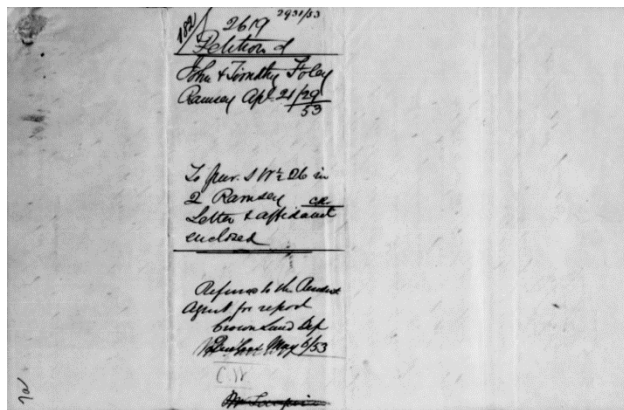 182/ 2619 2931/53
Petition of
John & Timothy Foley
Ramsey Apl 21/29
53
To pur. S W½ 26 in
2 Ramsey
Letter & affidavit
enclosed
Refered to the Resident
Agent for report
Crown Land Dep
Quebec May 6/53
C.W.